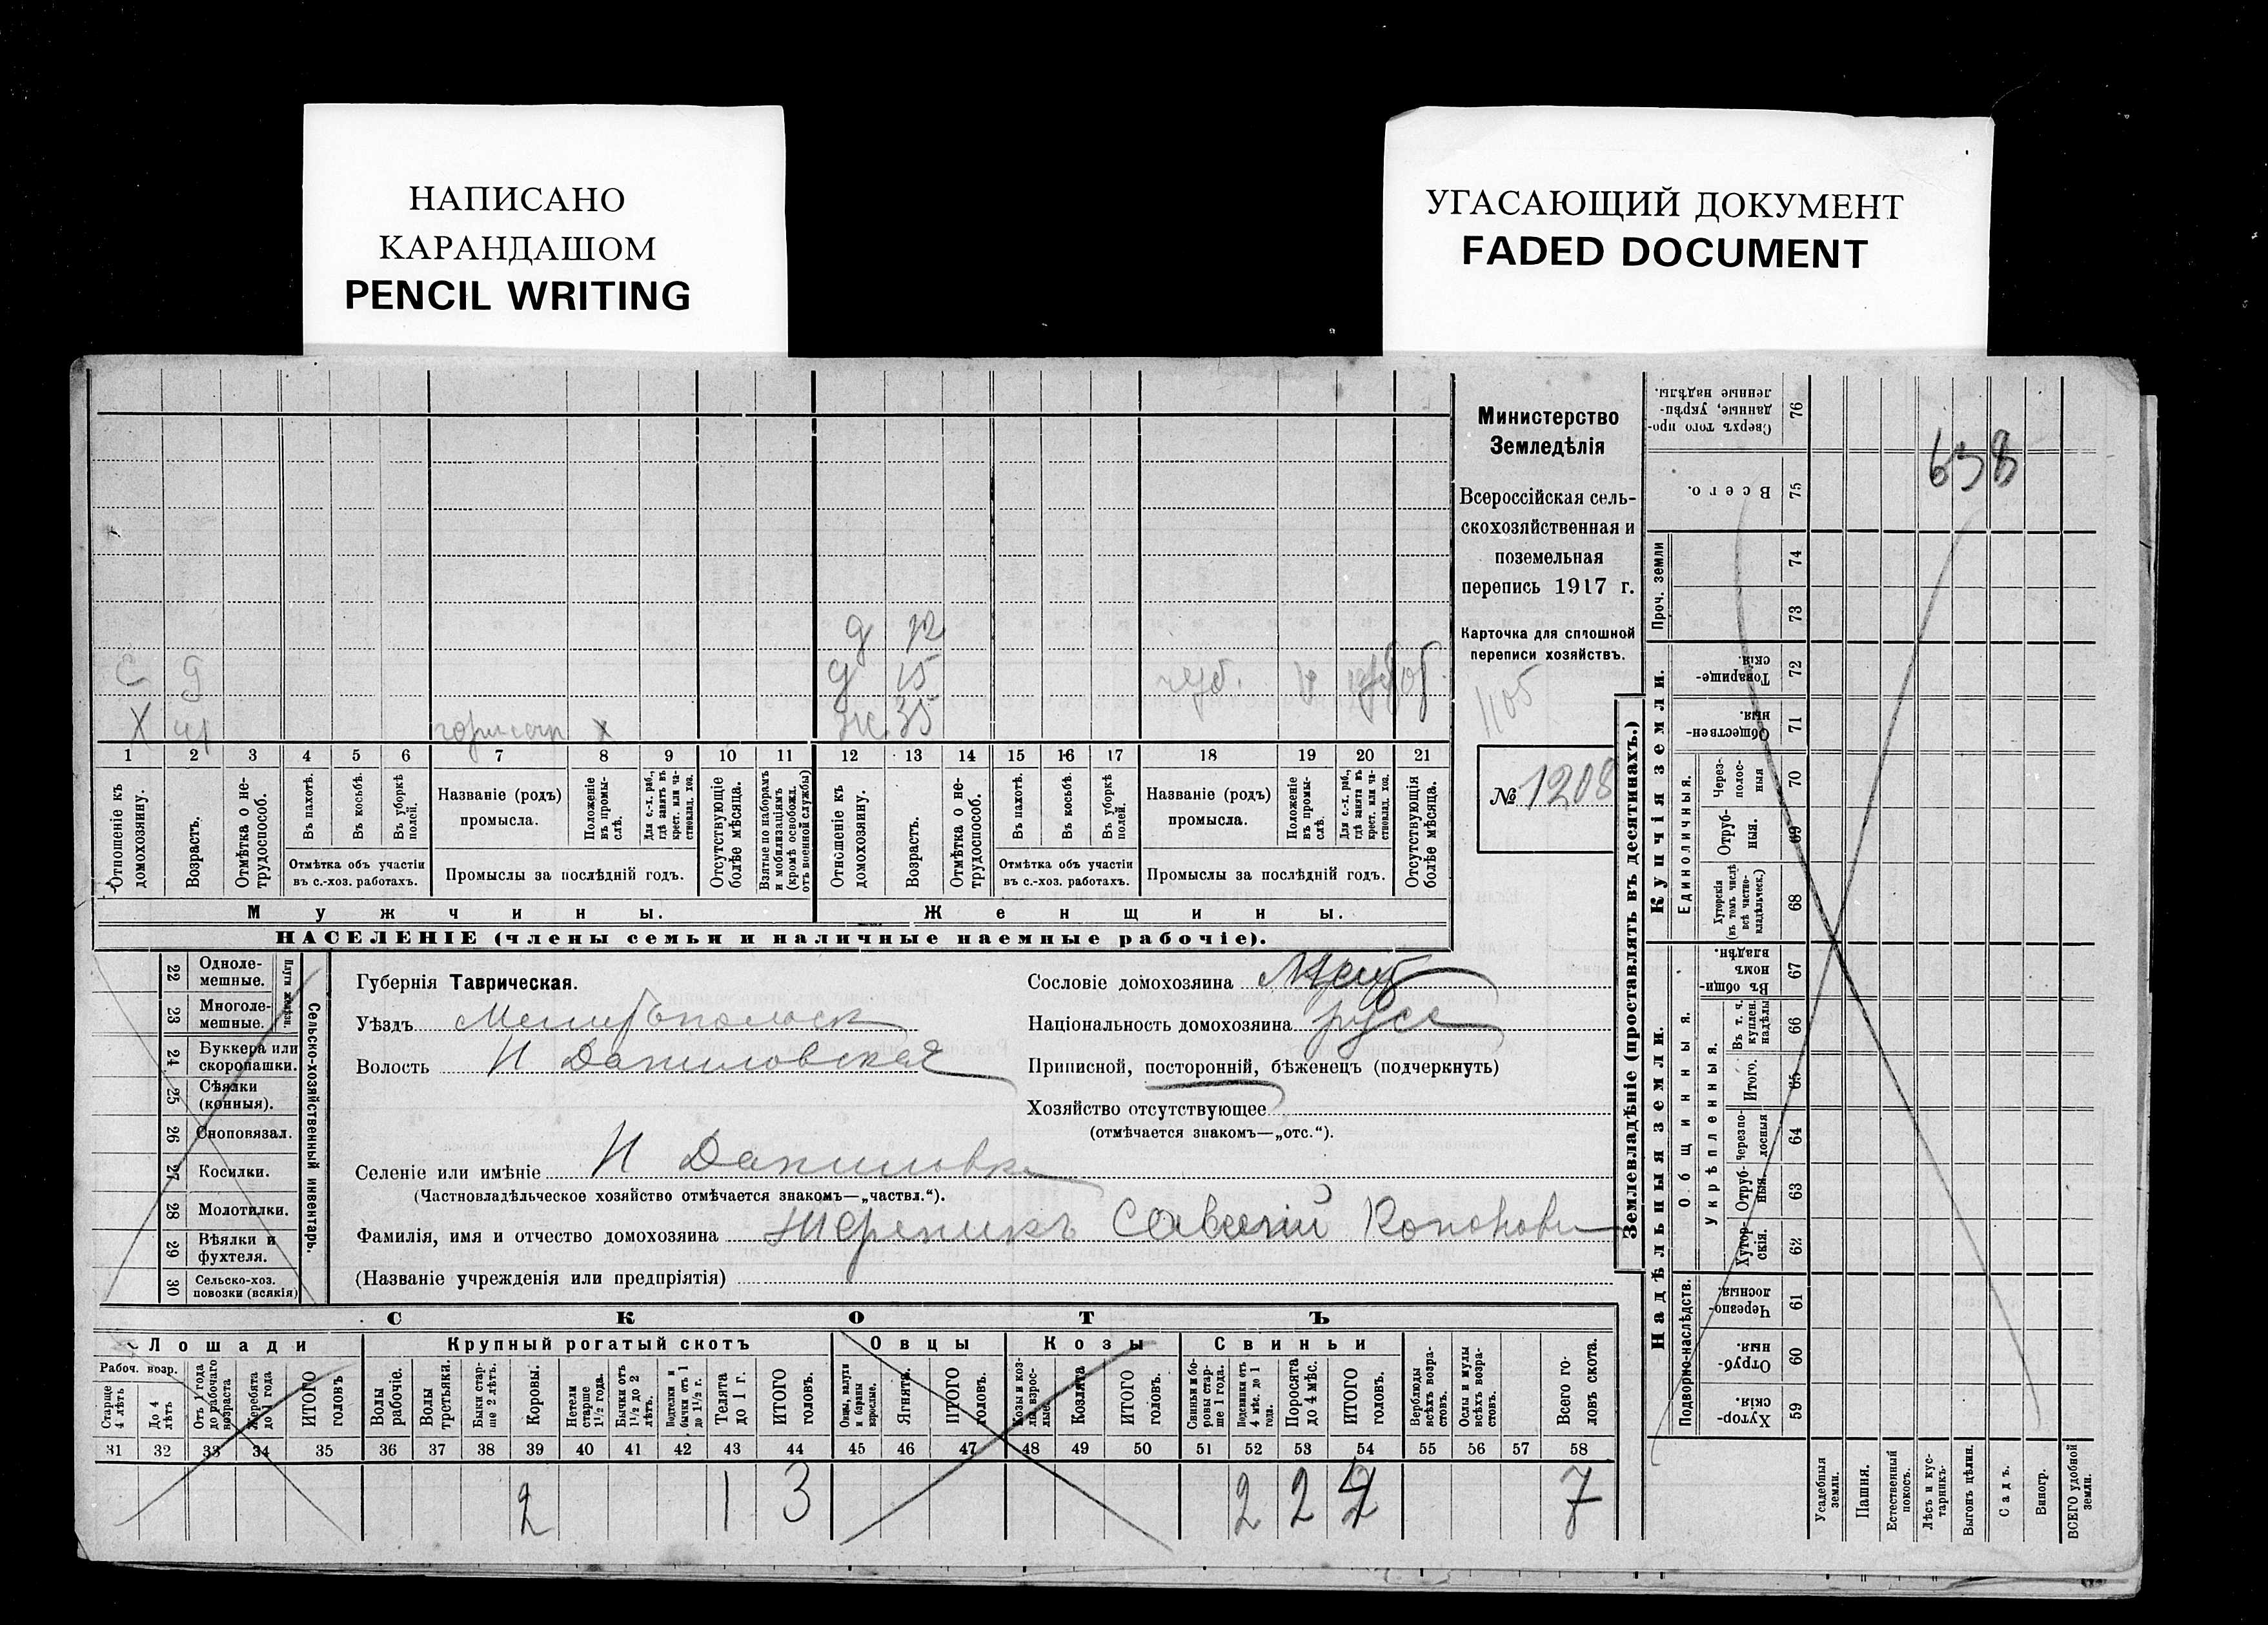 НАПИСАНО
КАРАНДАШОМ
PENCIL WRITING
УГАСАЮЩИЙ ДОКУМЕНТ
FADED DOCUMENT
д 12
С 9 д 15
Х 41 х ж 35
1 2 3 4 5 6 7 8 9 10 11 12 13 14 15 16 17 18 19 20 21
Отношеніе къ домохозяину.
Возрастъ.
Отмѣтка о не-трудоспособ.
Въ пахотѣ.
Въ косьбѣ.
Въ уборкѣ полей.
Отмѣтка объ участіи
въ с.-хоз. работахъ.
Названіе (родъ)
промысла.
Положеніе въ промы-слѣ.
Для с.-х. раб., гдѣ занятъ въ крест. или ча-стновлад. хоз.
Промыслы за послѣдній годъ.
Отсутствующіе болѣе мѣсяца.
Взятые по наборамъ и мобилизаціямъ (кромѣ освобожд. отъ военной службы)
Отношеніе къ домохозяину.
Возрастъ.
Отмѣтка о не-трудоспособ.
Въ пахотѣ.
Въ косьбѣ.
Въ уборкѣ полей.
Отмѣтка объ участіи
въ с.-хоз. работахъ.
Названіе (родъ)
промысла.
Положеніе въ промы-слѣ.
Для с.-х. раб., гдѣ занята въ крест. или ча-стновлад. хоз.
Промыслы за послѣдній годъ.
Отсутствующія болѣе мѣсяца.
Мужчины.
Женщины.
НАСЕЛЕНІЕ (члены семьи и наличные наемные рабочіе).
Министерство
Земледѣлія
Всероссійская сель-
скохозяйственная и
поземельная
перепись 1917 г.
Карточка для сплошной
переписи хозяйствъ.
1105
№ 1208
Сельско-хозяйственный инвентарь.
Плуги желѣзн.
22 Одноле-мешные.
23 Многоле-мешные.
24 Буккера или скоропашки.
25 Сѣялки (конныя).
26 Сноповязал.
27 Косилки.
28 Молотилки.
29 Вѣялки и фухтеля.
30 Сельско-хоз. повозки (всякія)
Губернія Таврическая.
Уѣздъ Мелитопольск
Волость Н Даниловская
Сословіе домохозяина
Національность домохозяина русс
Приписной, посторонній, бѣженецъ (подчеркнуть)
Хозяйство отсутствующее
(отмѣчается знакомъ—„отс.“).
Селеніе или имѣніе Н Даниловка
(Частновладѣльческое хозяйство отмѣчается знакомъ—„частвл.“).
Фамилія, имя и отчество домохозяина
(Названіе учрежденія или предпріятія)
СКОТЪ
Лошади
Крупный рогатый скотъ
Овцы
Козы
Свиньи
Рабоч. возр.
Старше 4 лѣтъ
До 4 лѣтъ
Отъ 1 года до рабочаго возраста
Жеребята до 1 года
ИТОГО головъ
Волы рабочіе.
Волы третьяки.
Быки стар-ше 2 лѣтъ.
Коровы.
Нетели старше 1½ года.
Бычки отъ 1½ до 2 лѣтъ.
Подтелки и бычки отъ 1 до 1½ г.
Телята до 1 г.
ИТОГО головъ.
Овцы, валухи и бараны взрослые.
Ягнята.
ИТОГО головъ.
Козы и коз-лы взрос-лые
Козлята
ИТОГО головъ.
Свиньи и бо-ровы стар-ше 1 года.
Подсвинки отъ 4 мѣс. до 1 года.
Поросята до 4 мѣс.
ИТОГО головъ.
Верблюды всѣхъ возра-стовъ.
Ослы и мулы всѣхъ возра-стовъ.
Всего го-ловъ скота.
31 32 33 34 35 36 37 38 39 40 41 42 43 44 45 46 47 48 49 50 51 52 53 54 55 56 57 58
2 1 3 2 2 4 7
Землевладѣніе (проставлять въ десятинахъ.)
Надѣльныя земли.
Купчія земли.
Проч. земли
Подворно-наслѣдств.
Общинныя.
Укрѣпленныя.
Единоличныя.
Сверхъ того про-данные, укрѣп-ленные надѣлы. 76
Всего. 75
74
73
Товарище-скія. 72
Обществен-ныя. 71
Через-полос-ныя 70
Отруб-ныя. 69
Хуторскія (въ томъ числѣ всѣ частно-владѣльческ.) 68
Въ общи-номъ владѣн. 67
Въ т. ч. куплен. надѣлы 66
Итого. 65
Черезпо-лосныя 64
Отруб-ныя. 63
Хутор-скія. 62
Черезпо-лосныя. 61
Отруб-ныя. 60
Хутор-скія. 59
638
Усадебныя земли.
Пашня.
Естественный покосъ.
Лѣсъ и кус-тарникъ.
Выгонъ цѣлин.
Садъ.
Виногр.
ВСЕГО удобной земли.